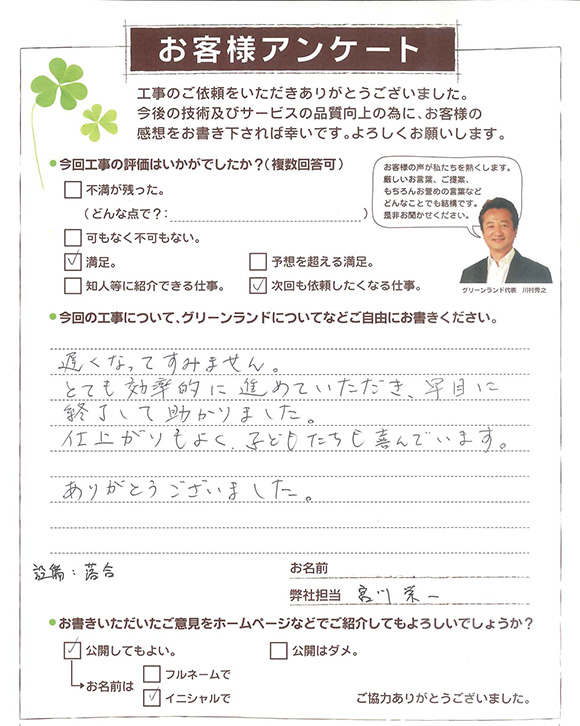 お客様アンケート
工事のご依頼をいただきありがとうございました。
今後の技術及びサービスの品質向上の為に、お客様の
感想をお書き下されば幸いです。よろしくお願いします。
●今回工事の評価はいかがでしたか?(複数回答可)
不満が残った。
(どんな点で?: )
可もなく不可もない。
✓満足。 予想を超える満足。
知人等に紹介できる仕事。 ✓次回も依頼したくなる仕事。
お客様の声が私たちを熱くします。
厳しいお言葉、ご提案、
もちろんお誉めの言葉など
どんなことでも結構です。
是非お聞かせください。
グリーンランド代表 川村秀之
●今回の工事について、グリーンランドについてなどご自由にお書きください。
遅くなってすみません。
とても効率的に進めていただき、早目に
終了して助かりました。
仕上がりもよく、子どもたちも喜んでいます。
ありがとうございました。
設備:落合
お名前
弊社担当 宮川 栄一
●お書きいただいたご意見をホームページなどでご紹介してもよろしいでしょうか?
✓公開してもよい。 公開はダメ。
お名前は フルネームで
✓イニシャルで
ご協力ありがとうございました。